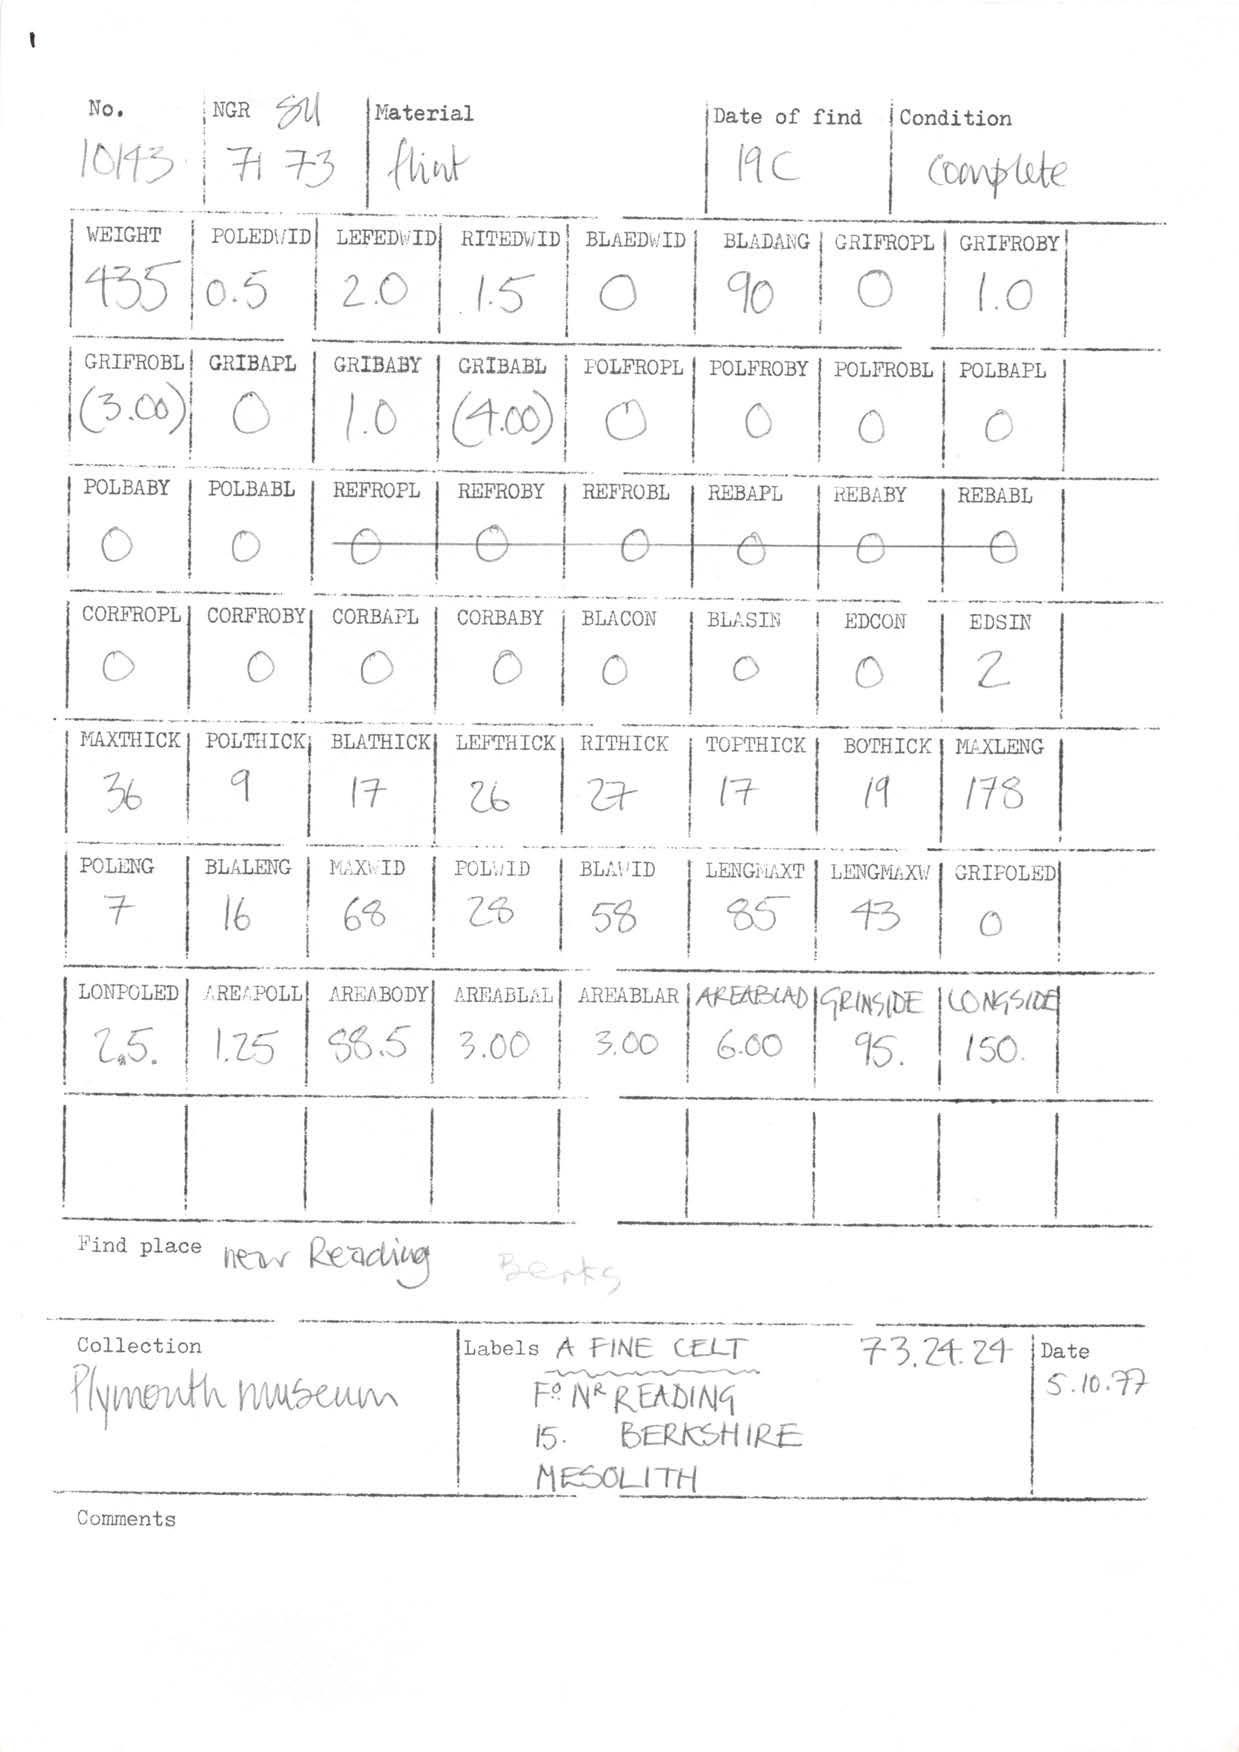 No. NGR SU Material Date of find Condition
10143 71 73 flint 19C complete
WEIGHT POLEDWID LEFEDWID RITEDWID BLAEDWID BLADANG GRIFROPL GRIFROBY
435 0.5 2.0 1.5 0 90 0 1.0
GRIFROBL GRIBAPL GRIBABY GRIBABL POLFROPL POLFROBY POLFROBL POLBAPL
(3.00) 0 1.0 (4.00) 0 0 0 0
POLBABY POLBABL REFROPL REFROBY REFROBL REBAPL REBABY REBABL
0 0 0 0 0 0 0 0
CORFROPL CORFROBY CORBAPL CORBABY BLACON BLASIN EDCON EDSIN
0 0 0 0 0 0 0 2
MAXTHICK POLTHICK BLATHICK LEFTHICK RITHICK TOPTHICK BOTHICK MAXLENG
36 9 17 26 27 17 19 178
POLENG BLALENG MAXWID POLWID BLAWID LENGMAXT LENGMAXW GRIPOLED
7 16 68 28 58 85 43 0
LONPOLED AREAPOLL AREABODY AREABLAL AREABLAR AREABLAD GRINSIDE LONGSIDE
2.5. 1.25 88.5 3.00 3.00 6.00 95. 150.
Find place near Reading Berks
Collection Labels A FINE CELT 73.24.24 Date
Plymouth museum Fo Nr READING 5.10.77
15. BERKSHIRE
MESOLITH
Comments